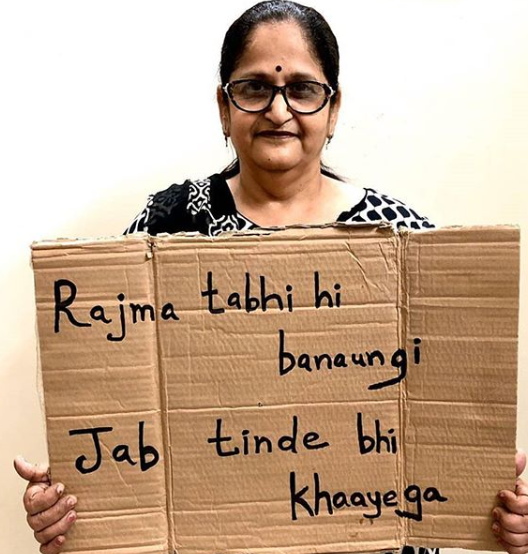 Rajma tabhi hi
banaungi
Jab tinde bhi
khaayega